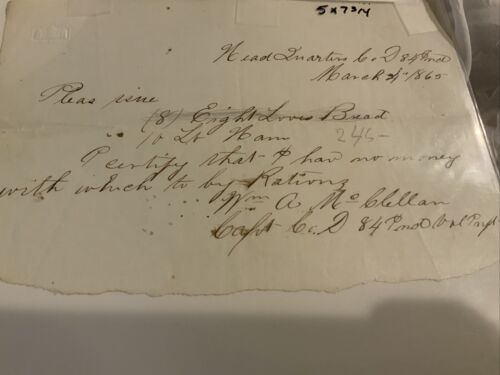 5X73N
Head Quarters Co. D 84 Ind
March 4th 1865
Pleas issue
(8) Eight Loves Bread
10 Lb Ham 245-
I certify that I hav no money
with which to by Rations
Wm A McClellan
Capt Co. D 84 Ind Vol Inft